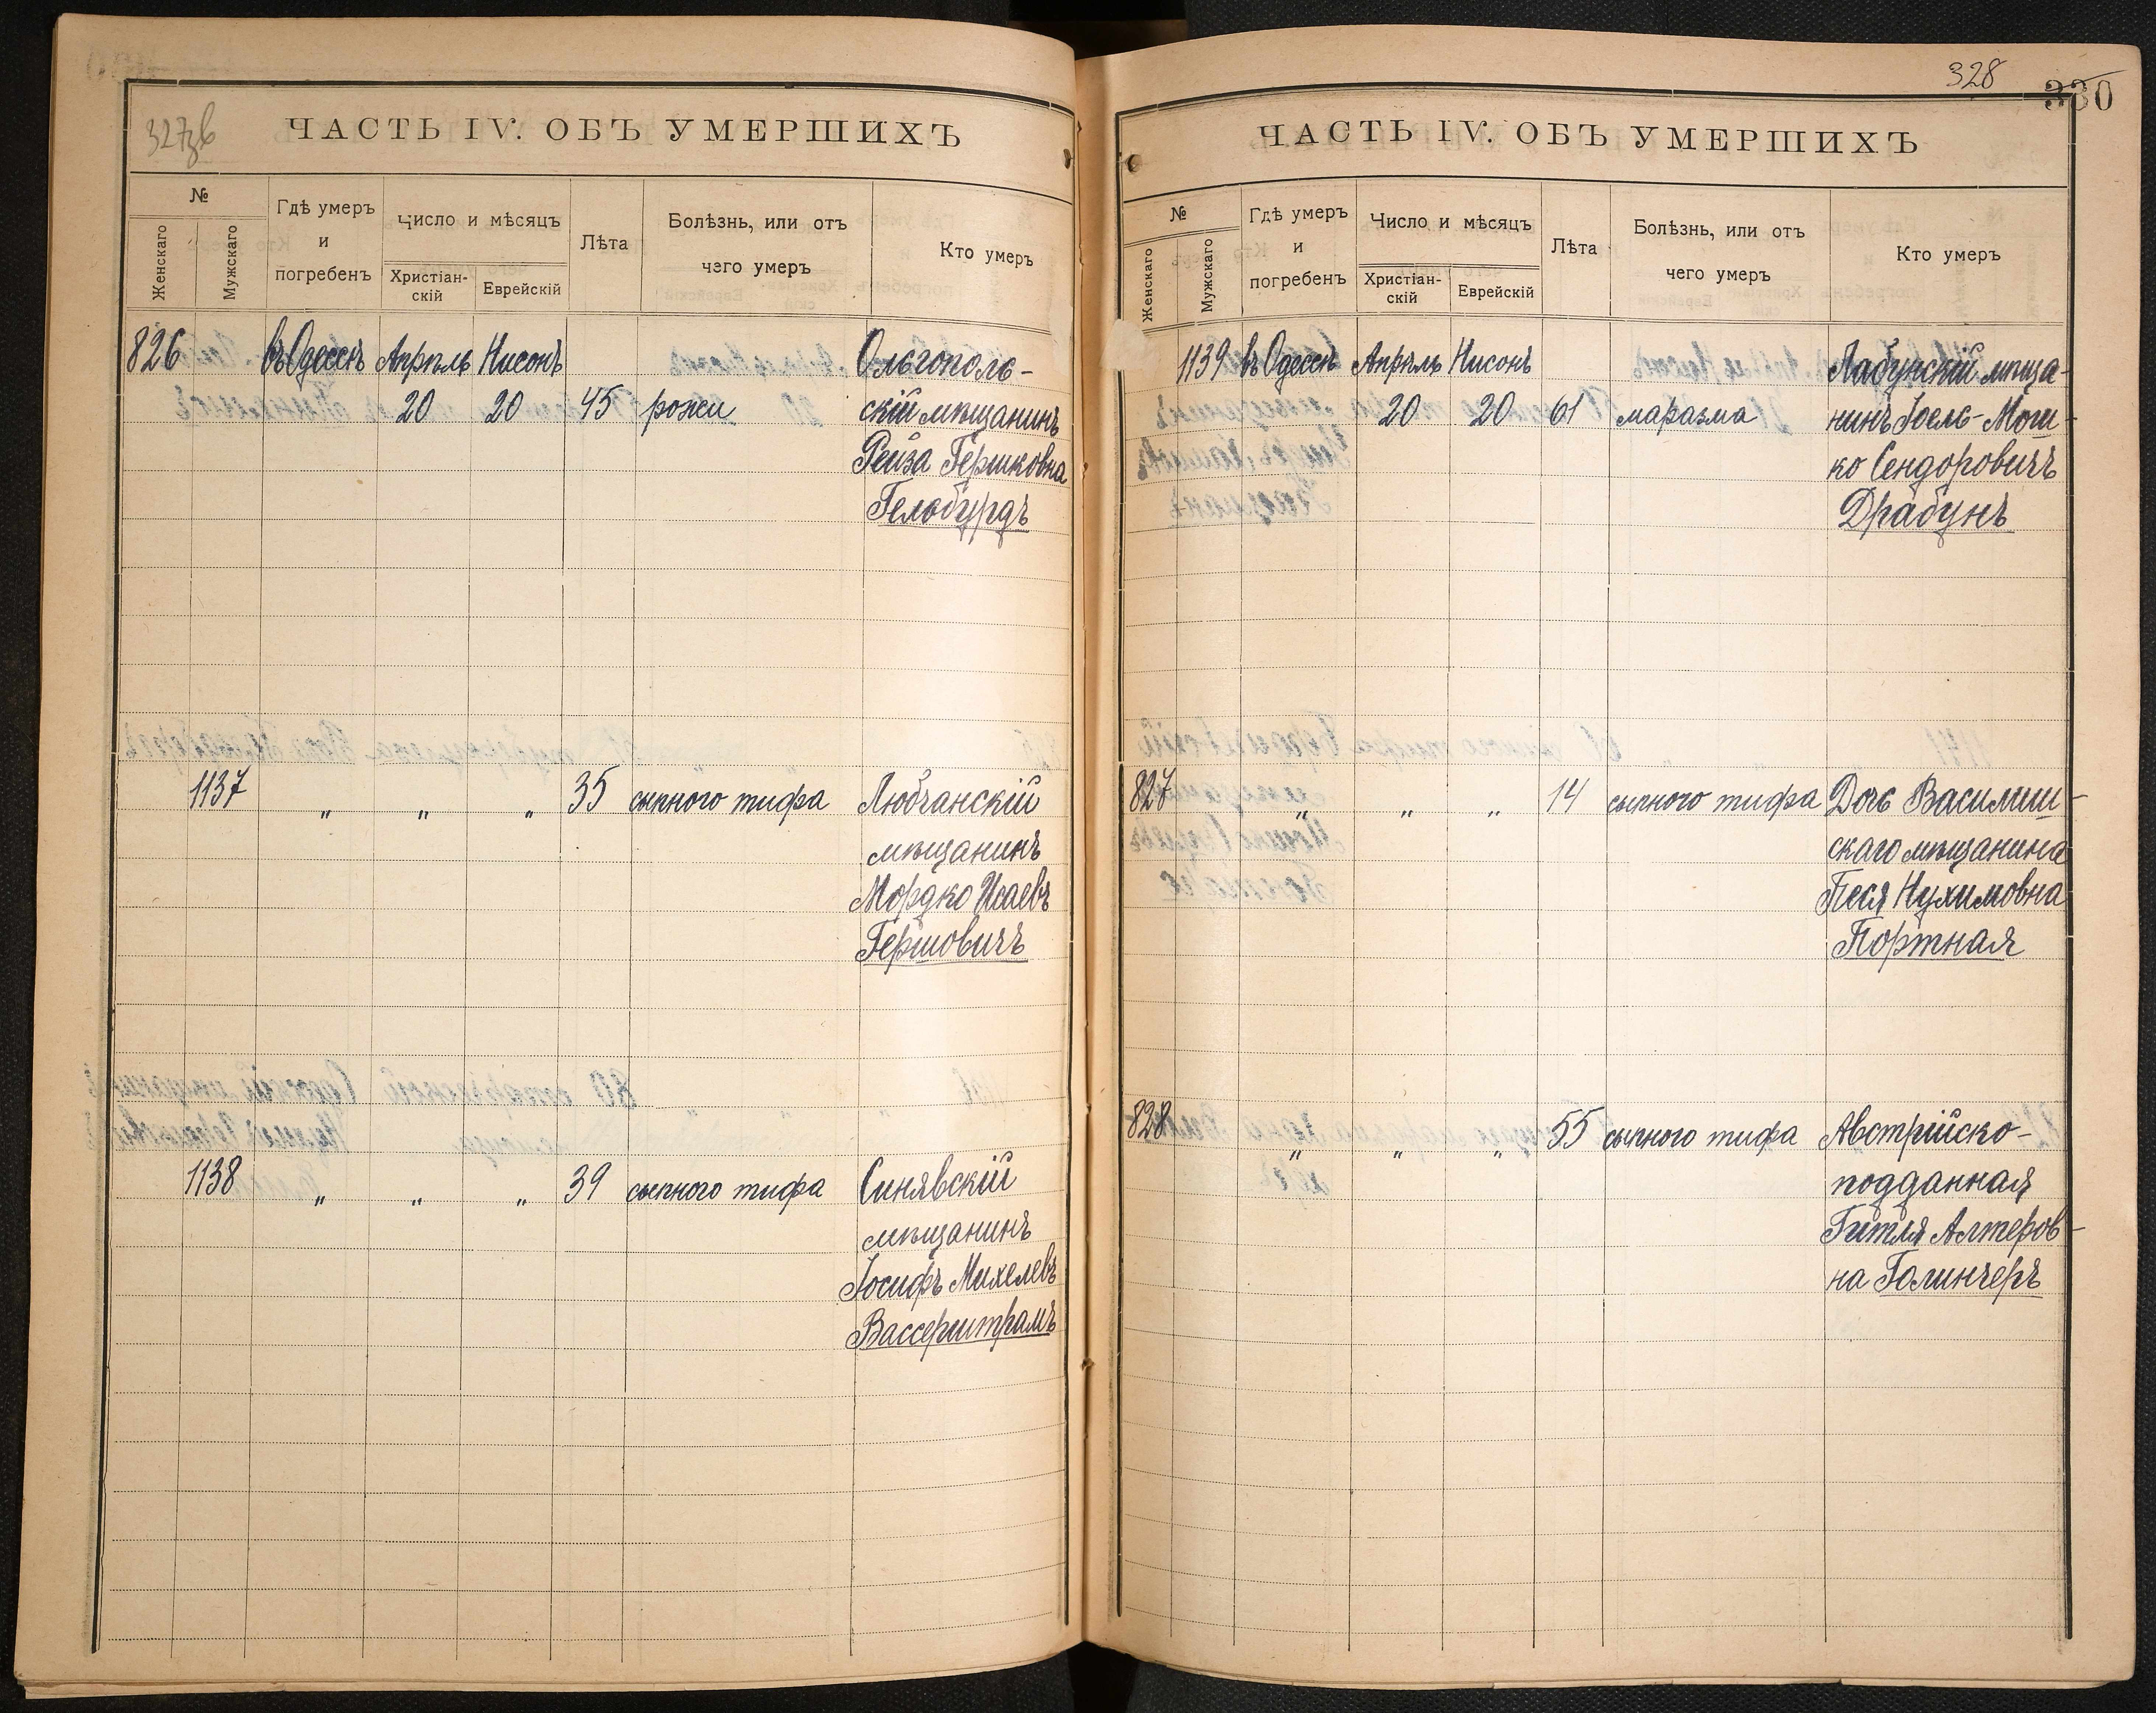 327зв
ЧАСТЬ IV. ОБЪ УМЕРШИХЪ
№
Женскаго
Мужскаго
Гдѣ умеръ
и
погребенъ
Число и мѣсяцъ
Христіан-
скій
Еврейскій
Лѣта
Болѣзнь, или отъ
чего умеръ
Кто умеръ
826 въ Одессѣ Апрѣль Нисонъ Ольгополь-
20 20 45 рожи скій мѣщанинъ
Рейза Гершковна
Гельбурдъ
1137 „ „ „ 35 сыпного тифа Любчанскій
мѣщанинъ
Мордко Исаевъ
Гершовичъ
1138 „ „ „ 39 сыпного тифа Синявскій
мѣщанинъ
Іосифъ Михелевъ
Вассерштрамъ
328
330
ЧАСТЬ IV. ОБЪ УМЕРШИХЪ
№
Женскаго
Мужскаго
Гдѣ умеръ
и
погребенъ
Число и мѣсяцъ
Христіан-
скій
Еврейскій
Лѣта
Болѣзнь, или отъ
чего умеръ
Кто умеръ
1139 въ Одессѣ Апрѣль Нисонъ Лабунскій мѣща-
20 20 61 маразма нинъ Іоель-Мош-
ко Сендоровичъ
Драбунъ
827 „ „ „ 14 сыпного тифа Дочь Василиш-
скаго мѣщанина
Песя Нухимовна
Портная
828 „ „ „ 55 сыпного тифа Австрійско-
подданная
Гитля Алтеров-
на Галинчеръ